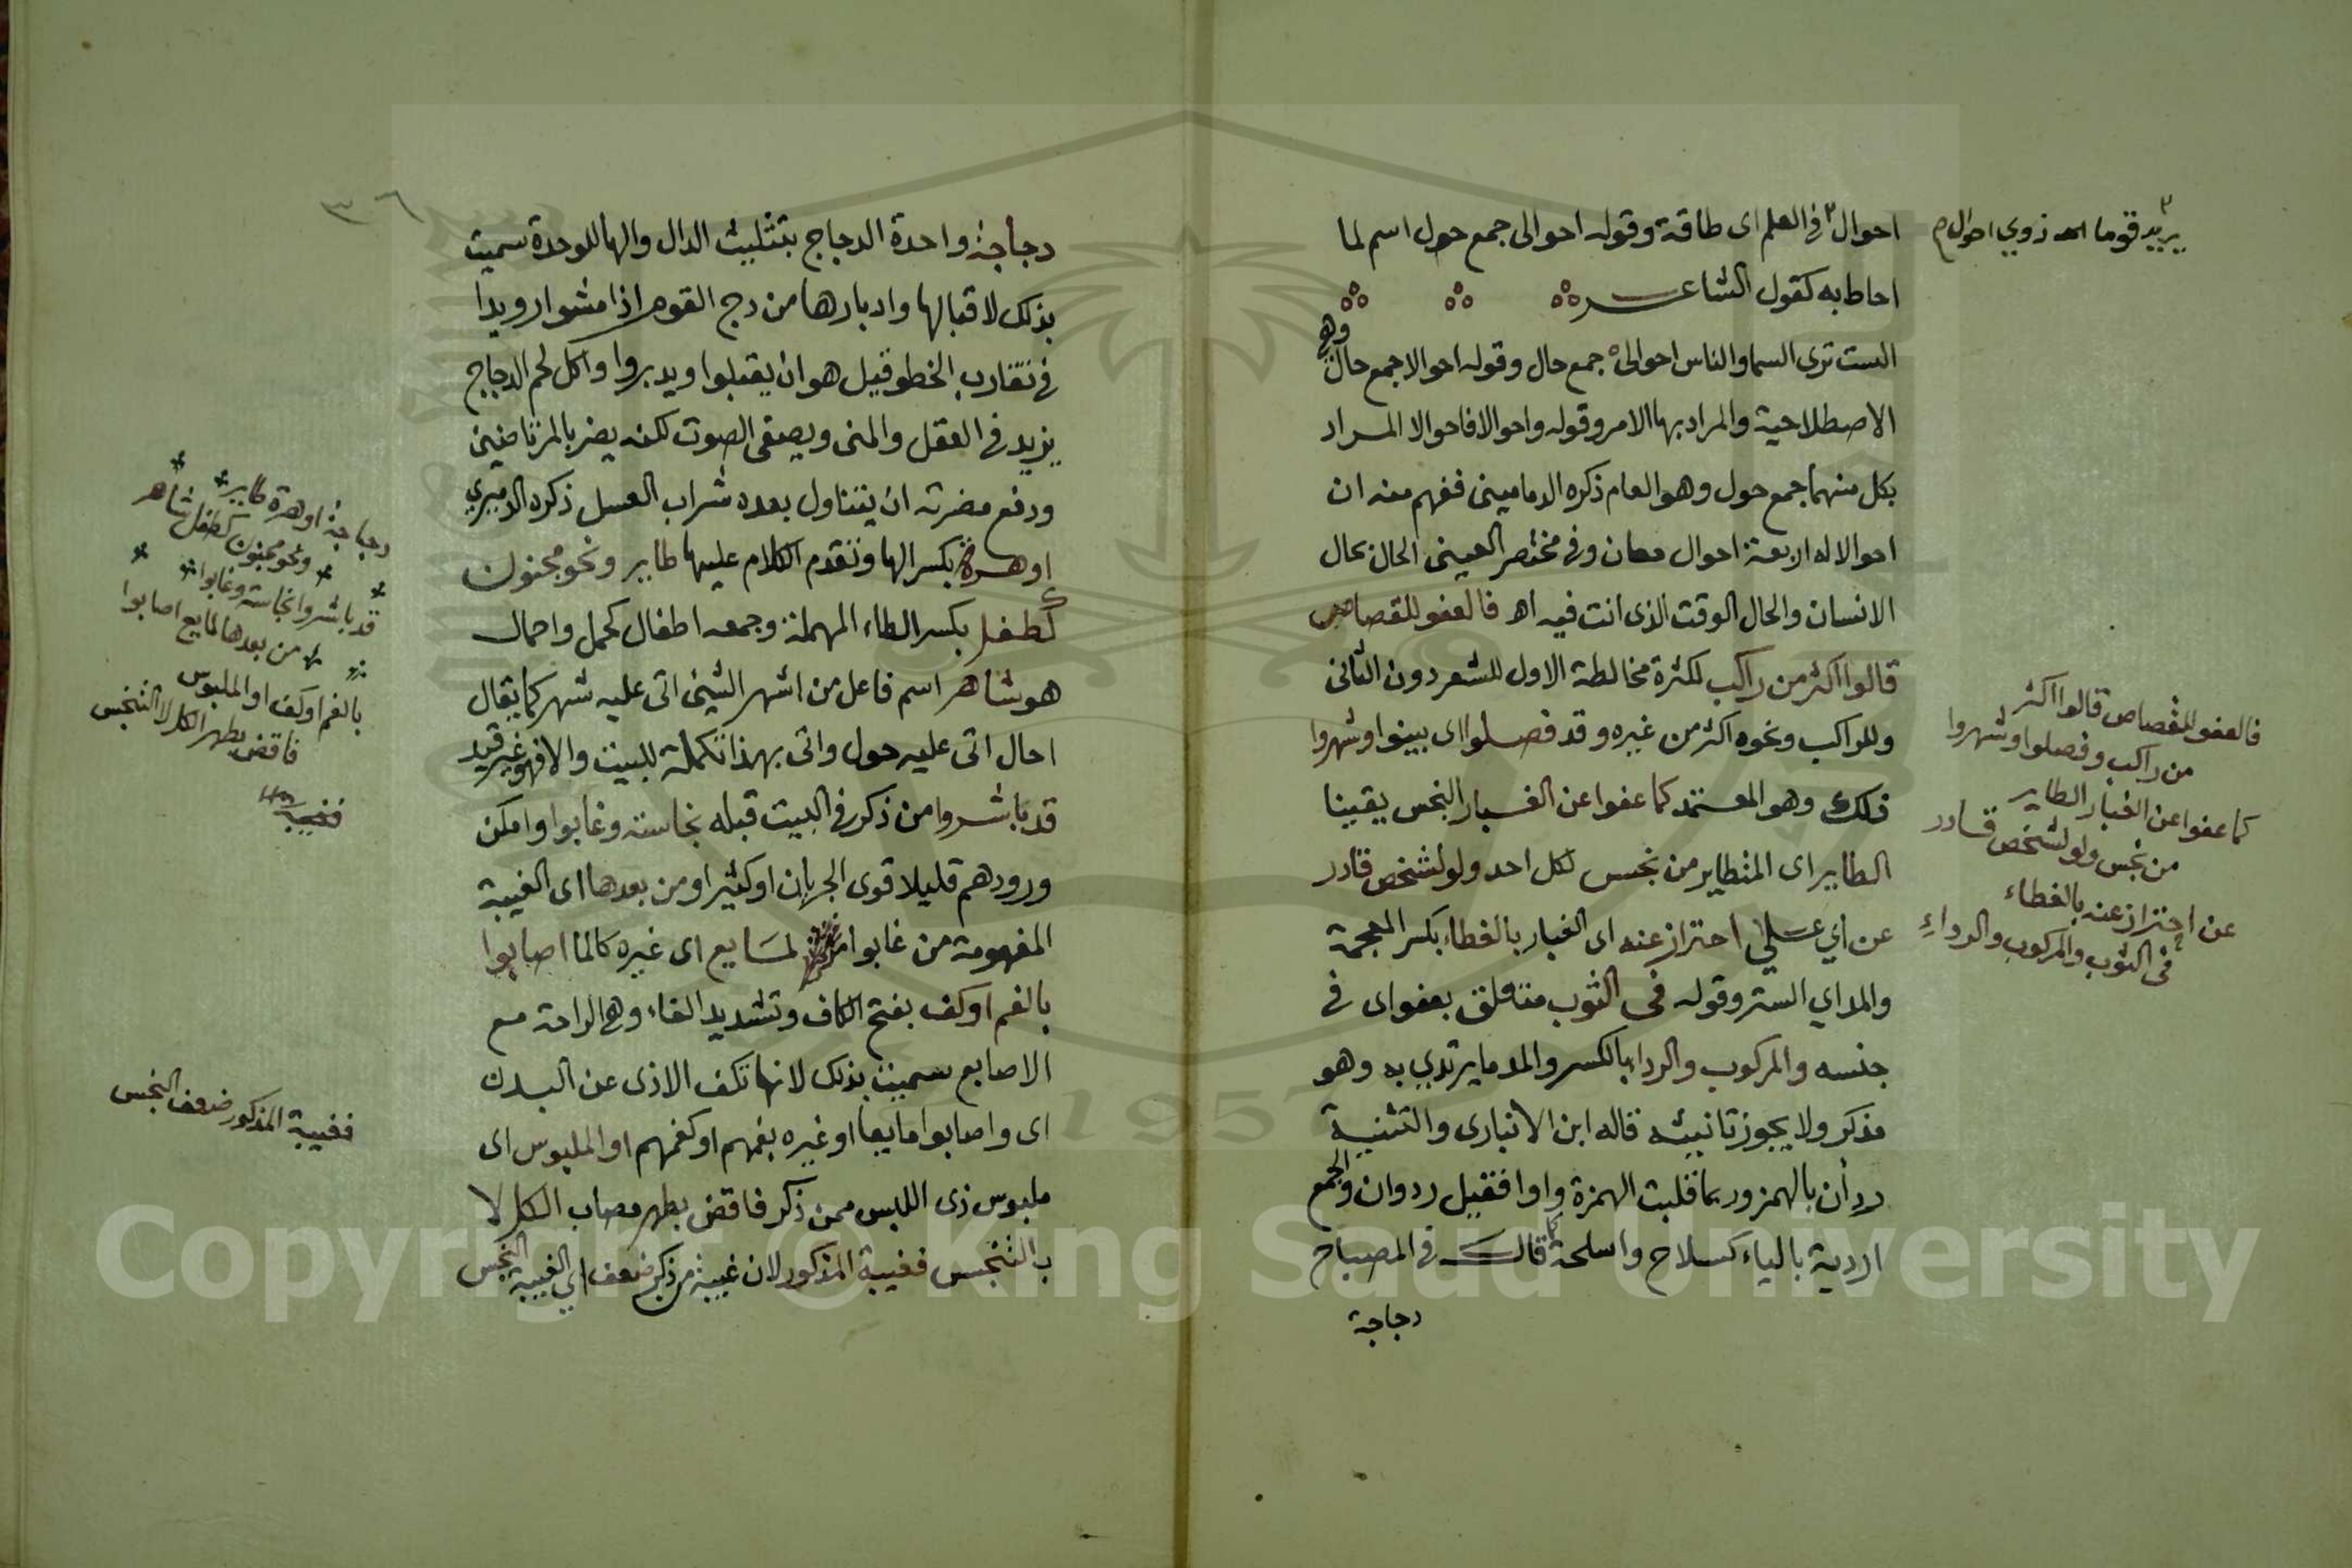 احوال٢ في العلم اى طاقة وقوله احوالى جمع حول اسم لما
احاط به كقول الشاعر
الست ترى السما والناس احوالى جمع حال وقوله احوالا جمع حال وهي
الاصطلاحية والمراد بها الامر وقوله واحوالا فاحوالا المراد
بكل منهما جمع حول وهو العام ذكره الدمامينى ففهم منه ان
احوالا له اربعة احوال معان وفى مختصر العينى الحال حال
الانسان والحال الوقت الذى انت فيه اهـ فالعفو للقصاص
قالوا اكثر من راكب لكثرة مخالطة الاول للشعر دون الثانى
وللراكب ونحوه اكثر من غيره وقد فصلوا اى بينوا وشهروا
ذلك وهو المعتمد كما عفوا عن الغبار النجس يقينا
الطاير اى المتطاير من نجس لكل احد ولو لشخص قادر
عن اي على احتراز عنه اى الغبار بالغطاء بكسر المعجمة
والمد اي الستر وقوله فى الثوب متعلق بعفو اى فى
جنسه والمركوب والرداء بالكسر والمد ما يرتدي به وهو
مذكر ولا يجوز تانيثه قاله ابن الانبارى والتثنية
ردأن بالهمز وربما قلبت الهمزة واوا فقيل ردوان والجمع
اردية بالياء كسلاح واسلحة كما قال فى المصباح
دجاجة
٢ يريد قوما ذوي احوال م
فالعفو للقصاص قالوا اكثر
من راكب وفصلوا وشهروا
كما عفوا عن الغبار الطاير
من نجس ولو لشخص قادر
عن احتراز عنه بالغطاء
فى الثوب والمركوب والرداء
٣٦
دجاجة واحدة الدجاج بتثليث الدال والها للوحدة سميت
بذلك لاقبالها وادبارها من دج القوم اذا مشوا رويدا
فى تقارب الخطو قيل هو ان يقبلوا ويدبروا واكل لحم الدجاج
يزيد فى العقل والمنى ويصفى الصوت لكنه يضر بالمرتاضين
ودفع مضرته ان يتناول بعده شراب العسل ذكره الدميري
او هرة بكسر الها وتقدم الكلام عليها طاير ونحو مجنون
كطفل بكسر الطاء المهملة وجمعه اطفال كحمل واحمال
هو شاهر اسم فاعل من اشهر الشيئ اتى عليه شهر كما يقال
احال اتى عليه حول واتى بهذا تكملة للبيت والا فهو غير قيد
قد باشروا من ذكر فى البيت قبله نجاسته وغابوا وامكن
ورودهم قليلا قوى الجريان او كثيرا ومن بعدها اى الغيبة
المفهومة من غابوا لمايع اى غيره كالما اصابوا
بالفم او كف بفتح الكاف وتشديد الفاء وهى الراحة مع
الاصابع سميت بذلك لانها تكف الاذى عن البدن
اى واصابوا مايعا او غيره بفمهم او كفهم او الملبوس اى
ملبوس ذى اللبس ممن ذكر فاقض بطهر مصاب الكل لا
بالتنجس فغيبة المذكور لان غيبة من ذكر ضعف اي الغيبة النجس
دجاجة او هرة طاير
ونحو مجنون كطفل شاهر
قد باشروا نجاسته وغابوا
من بعدها لمايع اصابوا
بالفم او كف او الملبوس
فاقض بطهر الكل لا التنجس
فغيبة
فغيبة المذكور ضعف النجس
Copyright © King Saud University
1957